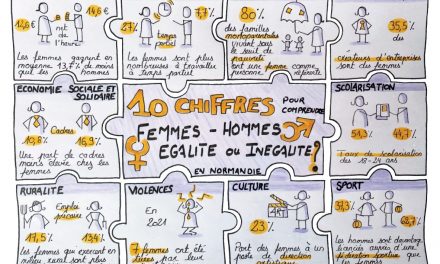 12,6€
14,6€
net
de
l'heure
Les femmes gagnent en
moyenne, 13,7% de moins
que les hommes
27%
7,7%
temps
partiel
Les femmes sont plus
nombreuses à travailler
à temps partiel
80%
des familles
monoparentales
vivant sous le
seuil de
pauvreté
ont une femme comme
personne référente
35,5%
des
créateurs d'entreprises
sont des femmes
ECONOMIE SOCIALE ET
SOLIDAIRE
Cadres
10,8%
16,3%
Une part de cadres
moins élevée chez les
femmes
10 CHIFFRES
POUR
COMPRENDRE
FEMMES - HOMMES
EGALITE OU INEGALITE ?
EN NORMANDIE
SCOLARISATION
51,3%
44,7%
Taux de scolarisation
des 18-24 ans
RURALITE
Emploi
précaire
17,5%
13,4%
Les femmes qui exercent en
milieu rural sont plus
VIOLENCES
En
2021
7 femmes ont été
tuées par leur
CULTURE
23%
Part des femmes à un
poste de direction
artistique
SPORT
37,3%
62,7%
Les hommes sont davantage
licenciés auprès d'une
fédération sportive que
les femmes